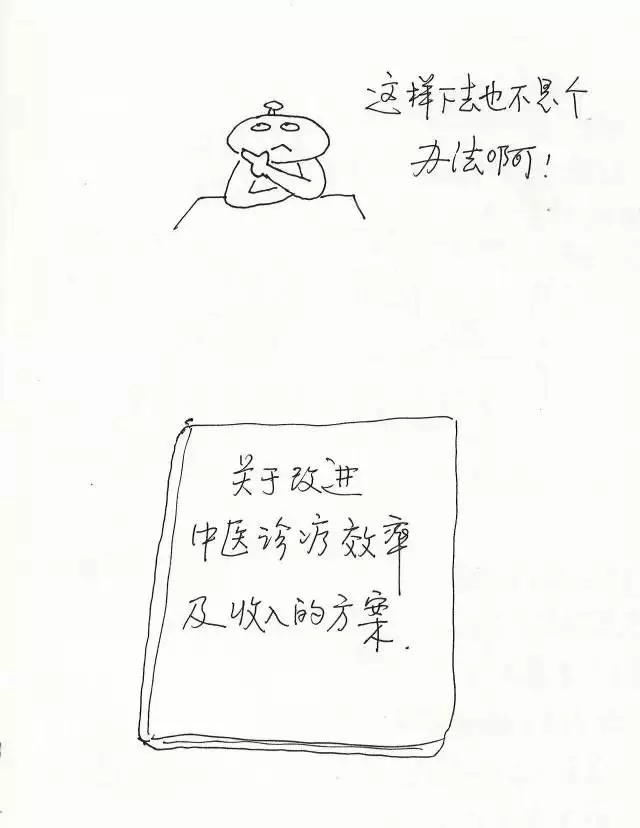 这样下去也不是个
办法啊!
关于改进
中医诊疗效率
及收入的方案.